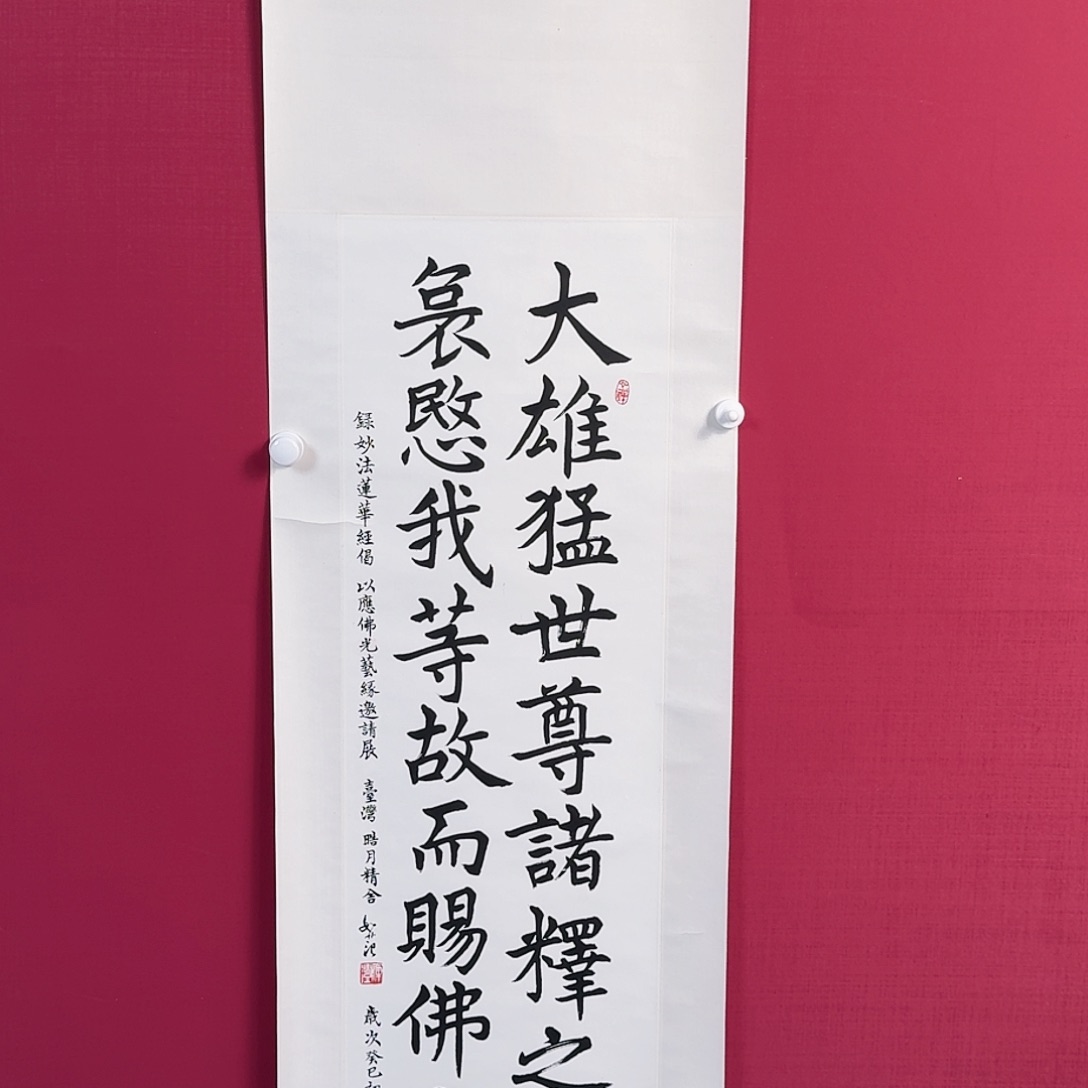 大雄猛世尊諸釋之
哀愍我等故而賜佛
録妙法蓮華経偈 以應佛光藝縁邀請展 臺灣 皓月精舍
歲次癸巳初